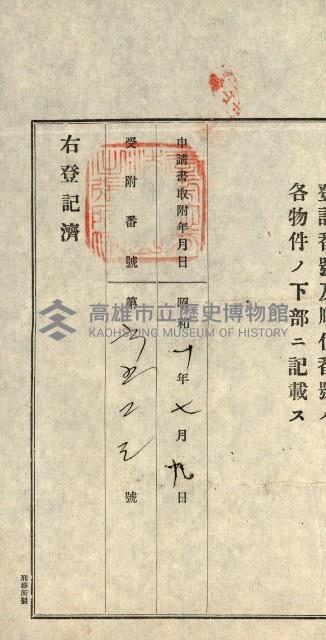 登記番號及順位番號ハ
各物件ノ下部ニ記載ス
申請書取附年月日 昭和十年七月九日
受附番號 第 號
右登記濟
高雄市立歷史博物館
KAOHSIUNG MUSEUM OF HISTORY
刑務所製